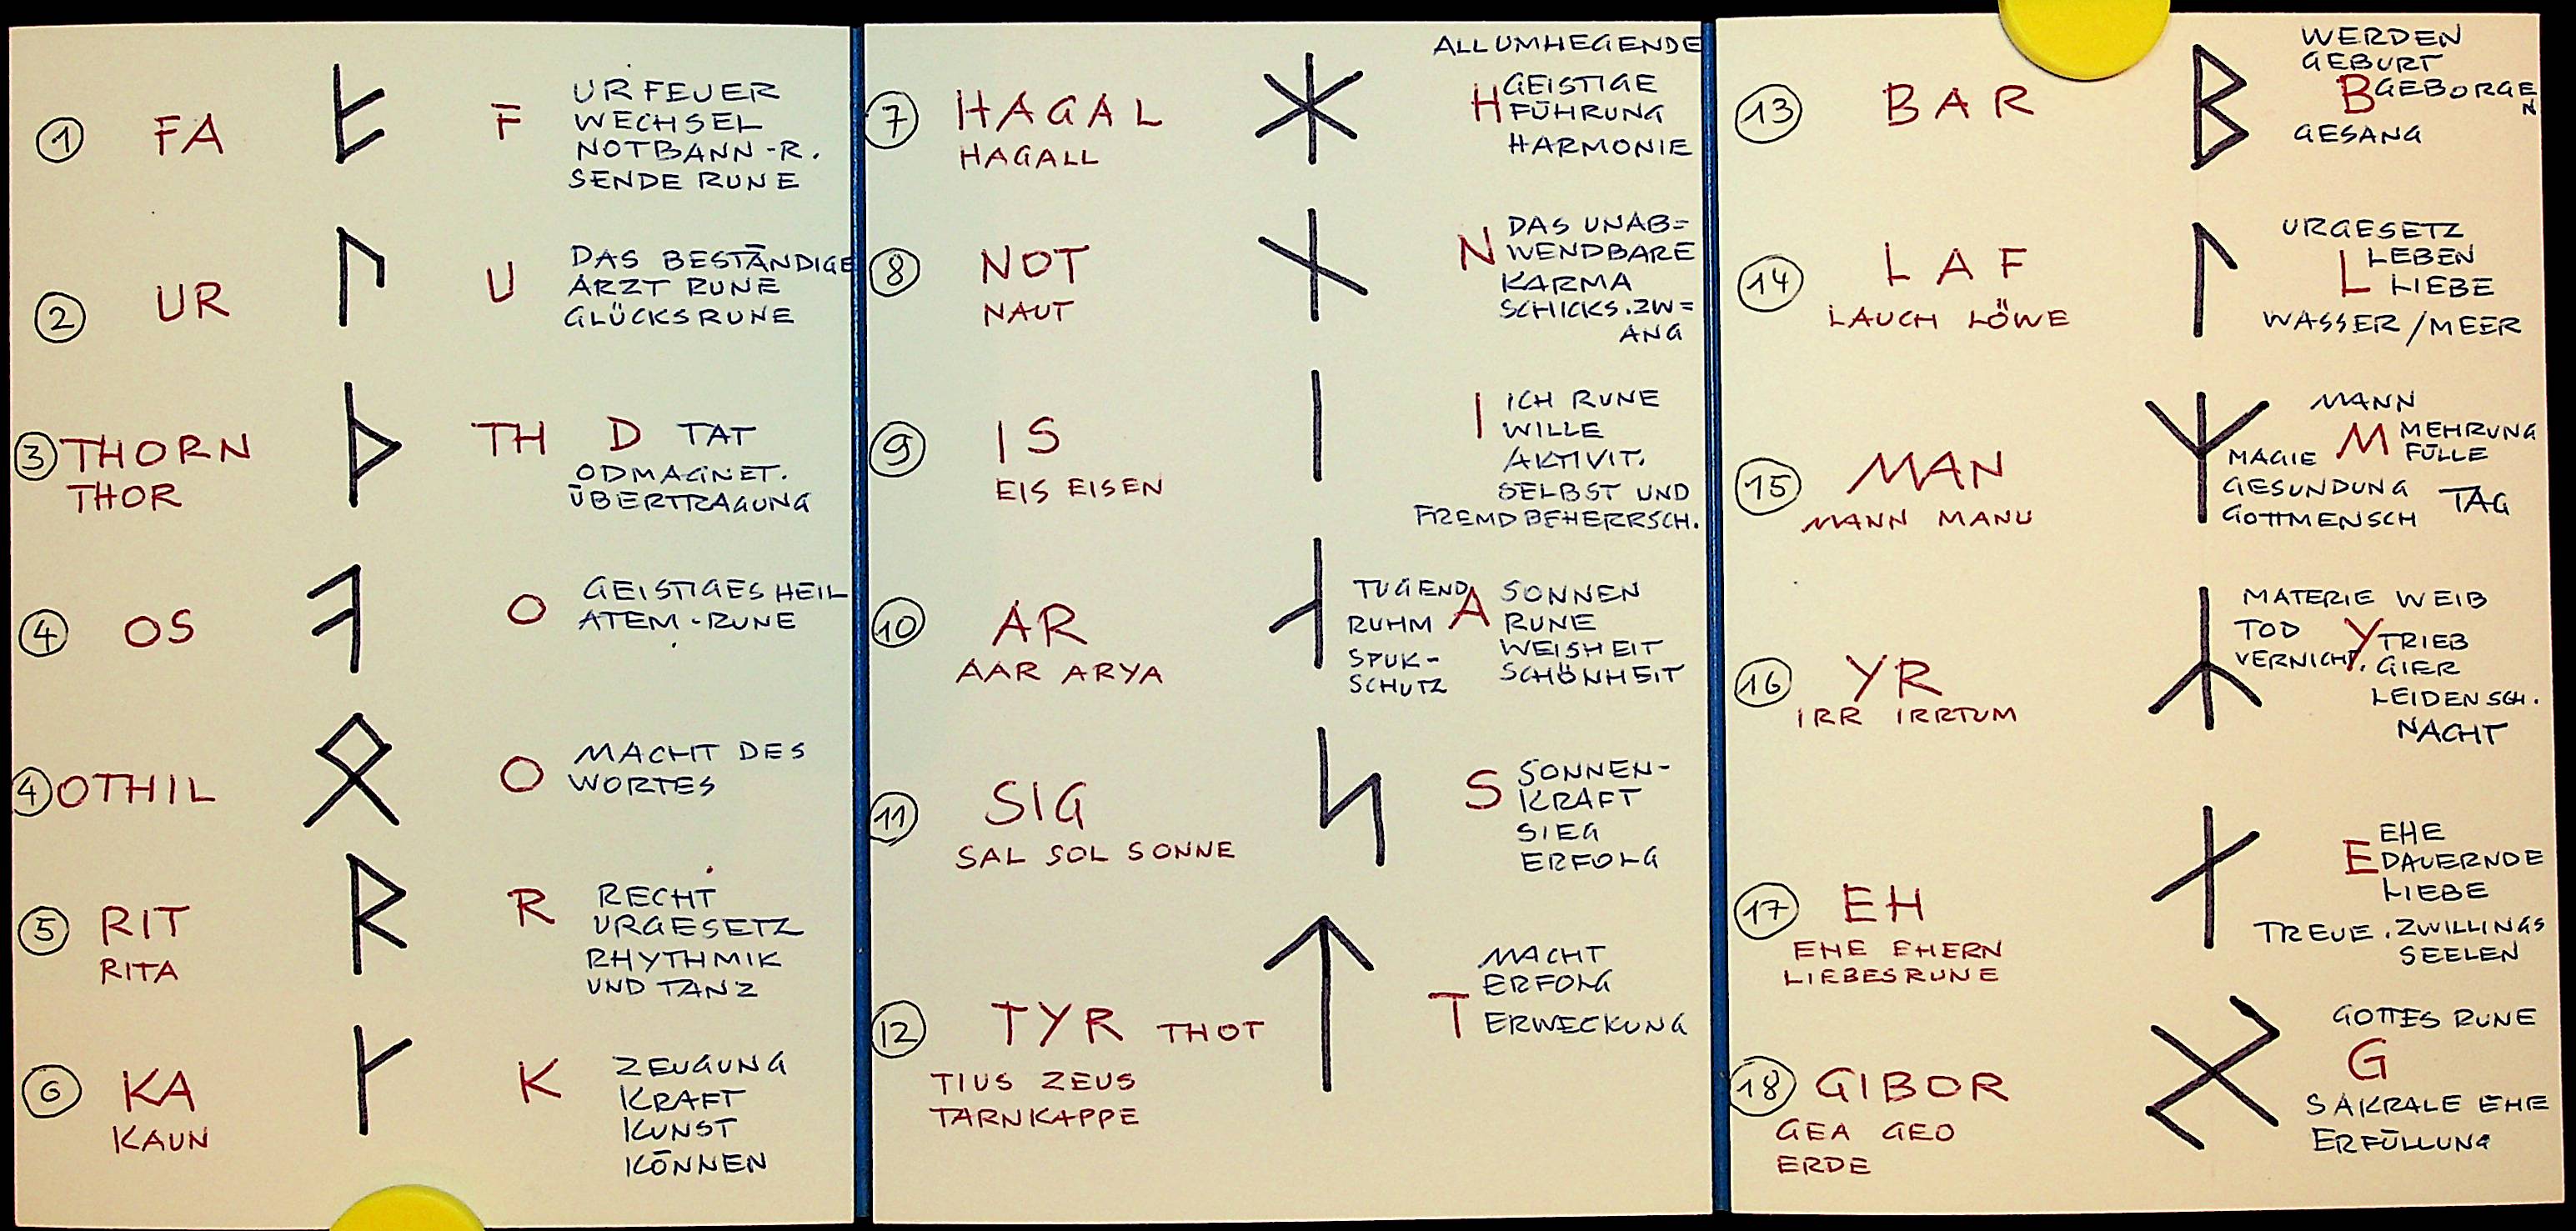 1 FA F UR FEUER
WECHSEL
NOTBANN-R.
SENDE RUNE
2 UR U DAS BESTÄNDIGE
ARZT RUNE
GLÜCKSRUNE
3 THORN TH D TAT
THOR ODMAGNET.
ÜBERTRAGUNG
4 OS O GEISTIGES HEIL
ATEM-RUNE
4 OTHIL O MACHT DES
WORTES
5 RIT R RECHT
RITA URGESETZ
RHYTHMIK
UND TANZ
6 KA K ZEUGUNG
KAUN KRAFT
KUNST
KÖNNEN
ALLUMHEGENDE
7 HAGAL H GEISTIGE
HAGALL FÜHRUNG
HARMONIE
8 NOT N DAS UNAB=
NAUT WENDBARE
KARMA
SCHICKS.ZW=
ANG
9 IS I ICH RUNE
EIS EISEN WILLE
AKTIVIT.
SELBST UND
FREMDBEHERRSCH.
10 AR TUGEND A SONNEN
AAR ARYA RUHM RUNE
SPUK- WEISHEIT
SCHUTZ SCHÖNHEIT
11 SIG S SONNEN-
SAL SOL SONNE KRAFT
SIEG
ERFOLG
12 TYR THOT T MACHT
TIUS ZEUS ERFOLG
TARNKAPPE ERWECKUNG
WERDEN
GEBURT
13 BAR B GEBORGE
N
GESANG
14 LAF URGESETZ
LAUCH LÖWE L LEBEN
LIEBE
WASSER/MEER
15 MAN MANN
MANN MANU M MEHRUNG
MAGIE FÜLLE
GESUNDUNG TAG
GOTTMENSCH
16 YR MATERIE WEIB
IRR IRRTUM TOD Y TRIEB
VERNICHT. GIER
LEIDENSCH.
NACHT
17 EH EHE
EHE EHERN E DAUERNDE
LIEBESRUNE LIEBE
TREUE. ZWILLINGS
SEELEN
18 GIBOR GOTTES RUNE
GEA GEO G
ERDE SAKRALE EHE
ERFÜLLUNG